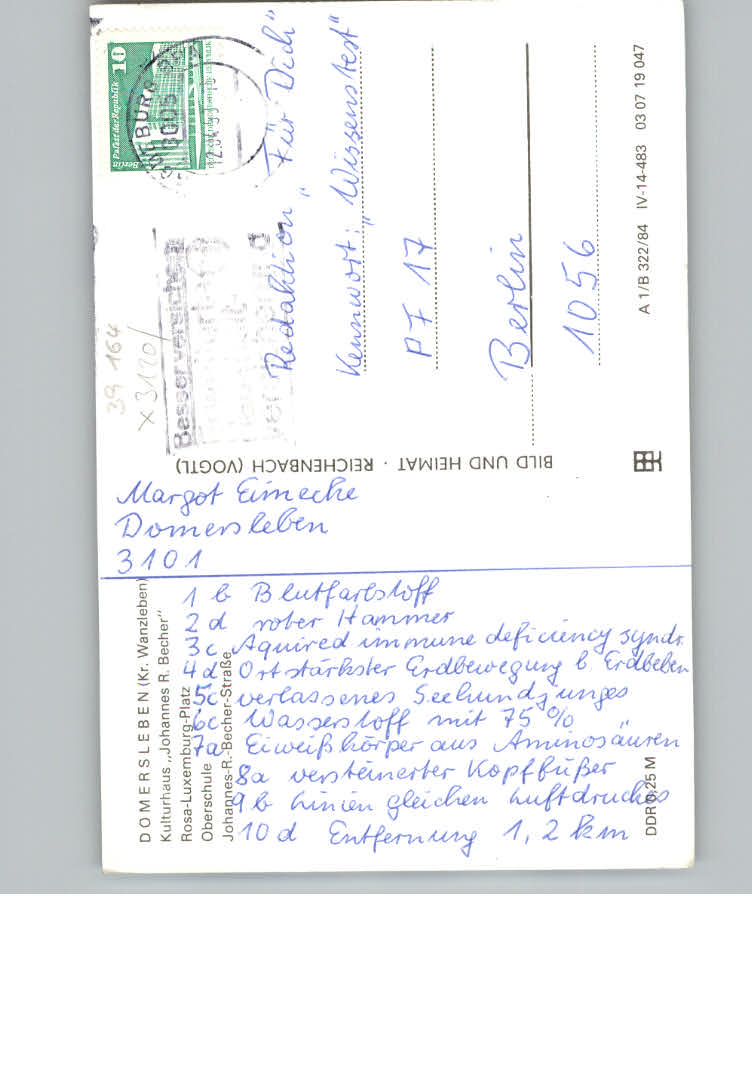 Margot Eimecke
Domersleben
3101
1 b Blutfarbstoff
2 d roter Hammer
3 c Aquired immune deficiency syndr.
4 d Ort stärkster Erdbewegung b Erdbeben
5c verlassenes Seehundjunges
6c Wasserstoff mit 75 %
7a Eiweißkörper aus Aminosäuren
8a versteinerter Kopffüßer
9 b Linien gleichen Luftdruckes
10 d Entfernung 1,2 km
DOMERSLEBEN (Kr. Wanzleben)
Kulturhaus „Johannes R. Becher"
Rosa-Luxemburg-Platz
Oberschule
Johannes-R.-Becher-Straße
DDR 0,25 M
BILD UND HEIMAT · REICHENBACH (VOGTL)
Redaktion „Für Dich"
Kennwort: „Wissenstest"
PF 17
Berlin
1056
A 1/B 322/84 IV-14-483 03 07 19 047
10
Palast der Republik
Berlin
Besser versichern
39 164
x3120/